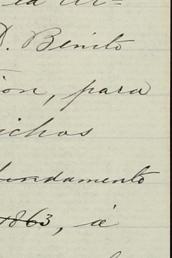 D. Benito
ion, para
ichos
fundamento
1863, á